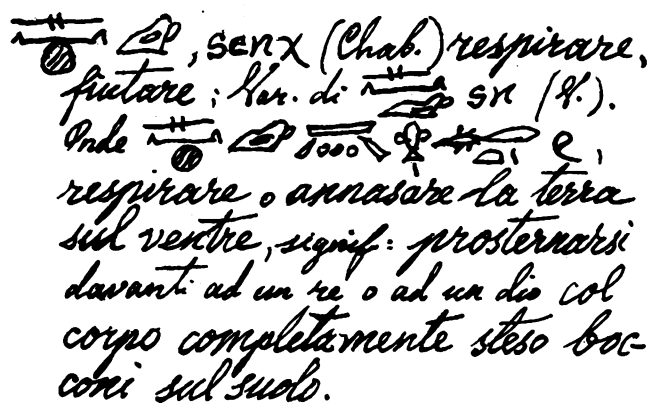 𓊃𓈖𓐍 , senχ (Chab.) respirare,
fiutare; Var. di 𓊃𓈖 sn (V.).
Onde 𓊃𓈖𓐍 e,
respirare o annasare la terra
sul ventre, signif: prosternarsi
davanti ad un re o ad un dio col
corpo completamente steso boc-
coni sul suolo.